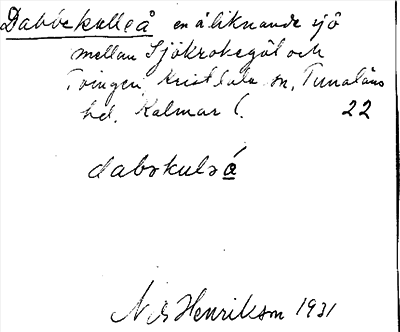 Daböckulleå en åliknande sjö
mellan Sjökrokegöl och
Tvingen, Kristdala sn, Tunaläns
hd, Kalmar l. 22
dabskulsá
Nils Henrikson 1931